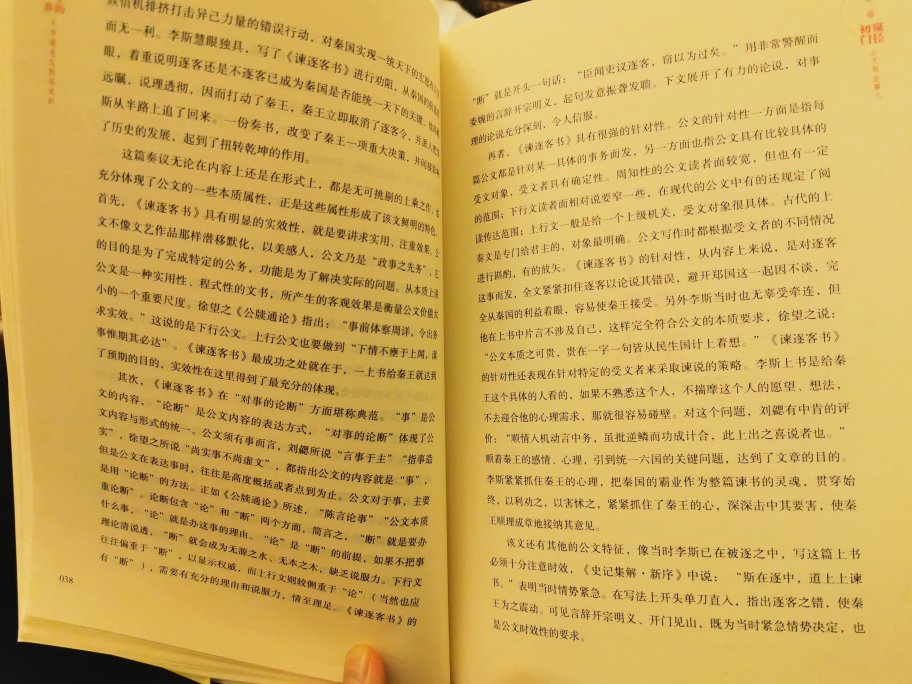 族借机排挤打击异己力量的错误行动，对秦国实现一统天下的宏愿有百害
而无一利。李斯慧眼独具，写了《谏逐客书》进行劝阻，从秦国的
眼，着重说明逐客还是不逐客已成为秦国是否能统一天下的关键，他高瞻
远瞩，说理透彻，因而打动了秦王，秦王立即取消了逐客令，并派人把李
斯从半路上追了回来。一份奏书，改变了秦王一项重大决策，并间接影响
了历史的发展，起到了扭转乾坤的作用。
这篇奏议无论在内容上还是在形式上，都是无可挑剔的上乘之作，也
充分体现了公文的一些本质属性，正是这些属性形成了该文鲜明的特色。
首先，《谏逐客书》具有明显的实效性，就是要讲求实用、注重效果。公
文不像文艺作品那样潜移默化，以美感人，公文乃是“政事之先务”，它
的目的是为了完成特定的公务，功能是为了解决实际的问题。从本质上说
公文是一种实用性、程式性的文书，所产生的客观效果是衡量公文价值大
小的一个重要尺度。徐望之《公牍通论》指出：“事前体察周详，令出务
求实效。”这说的是下行公文。上行公文也要做到“下情不壅于上闻，谋
事惟期其必达”。《谏逐客书》最成功之处就在于，一上书给秦王就达到
了预期的目的，实效性在这里得到了最充分的体现。
其次，《谏逐客书》在“对事的论断”方面堪称典范。“事”是公
文的内容，“论断”是公文内容的表达方式，“对事的论断”体现了公
文内容与形式的统一。公文须有事而言，刘勰所说“言事于主”“指事造
实”，徐望之所说“尚实事不尚虚文”，都指出公文的内容就是“事”，
但是公文在表达事时，往往是高度概括或者点到为止。公文对于事，主要
是用“论断”的方法。正如《公牍通论》所述，“陈言论事”“公文本质
重论断”。论断包含“论”和“断”两个方面，简言之，“断”就是要办
什么事，“论”就是办这事的理由。“论”是“断”的前提，如果不把事
理论清说透，“断”就会成为无源之水、无本之木，缺乏说服力。下行文
往往偏重于“断”，以显示权威，而上行文则较侧重于“论”（当然也应
有“断”），需要有充分的理由和说服力，情至理足。《谏逐客书》的
038
初窥
门径
“断”就是开头一句话；“臣闻吏议逐客，窃以为过矣。”用非常警醒而
委婉的言辞开宗明义，起句发意振聋发聩。下文展开了有力的论说，对事
理的论说充分深刻，令人信服。
再者，《谏逐客书》具有很强的针对性。公文的针对性一方面是指每
篇公文都是针对某一具体的事务而发，另一方面也指公文具有比较具体的
受文对象，受文者具有确定性。周知性的公文读者面较宽，但也有一定
的范围；下行文读者面相对说要窄一些，在现代的公文中有的还规定了阅
读传达范围；上行文一般是给一个上级机关，受文对象很具体。古代的上
奏文是专门给君主的，对象最明确。公文写作时都根据受文者的不同情况
进行斟酌，有的放矢。《谏逐客书》的针对性，从内容上来说，是对逐客
这事而发，全文紧紧扣住逐客以论说其错误，避开郑国这一起因不谈，完
全从秦国的利益着眼，容易使秦王接受。另外李斯当时也无辜受牵连，但
他在上书中片言不涉及自己，这样完全符合公文的本质要求，徐望之说：
“公文本质之可贵，贵在一字一句皆从民生国计上着想。”《谏逐客书》
的针对性还表现在针对特定的受文者来采取谏说的策略。李斯上书是给秦
王这个具体的人看的，如果不熟悉这个人，不揣摩这个人的愿望、想法，
不去迎合他的心理需求，那就很容易碰壁。对这个问题，刘勰有中肯的评
价；“顺情人机动言中务，虽批逆鳞而功成计合，此上出之喜说者也。”
顺着秦王的感情、心理，引到统一六国的关键问题，达到了文章的目的。
李斯紧紧抓住秦王的心理，把秦国的霸业作为整篇谏书的灵魂，贯穿始
终，以利劝之，以害怵之，紧紧抓住了秦王的心，深深击中其要害，使秦
王顺理成章地接纳其意见。
该文还有其他的公文特征，像当时李斯已在被逐之中，写这篇上书
必须十分注意时效，《史记集解·新序》中说：“斯在逐中，道上上谏
书。”表明当时情势紧急。在写法上开头单刀直入，指出逐客之错，使秦
王为之震动。可见言辞开宗明义、开门见山，既为当时紧急情势决定，也
是公文时效性的要求。